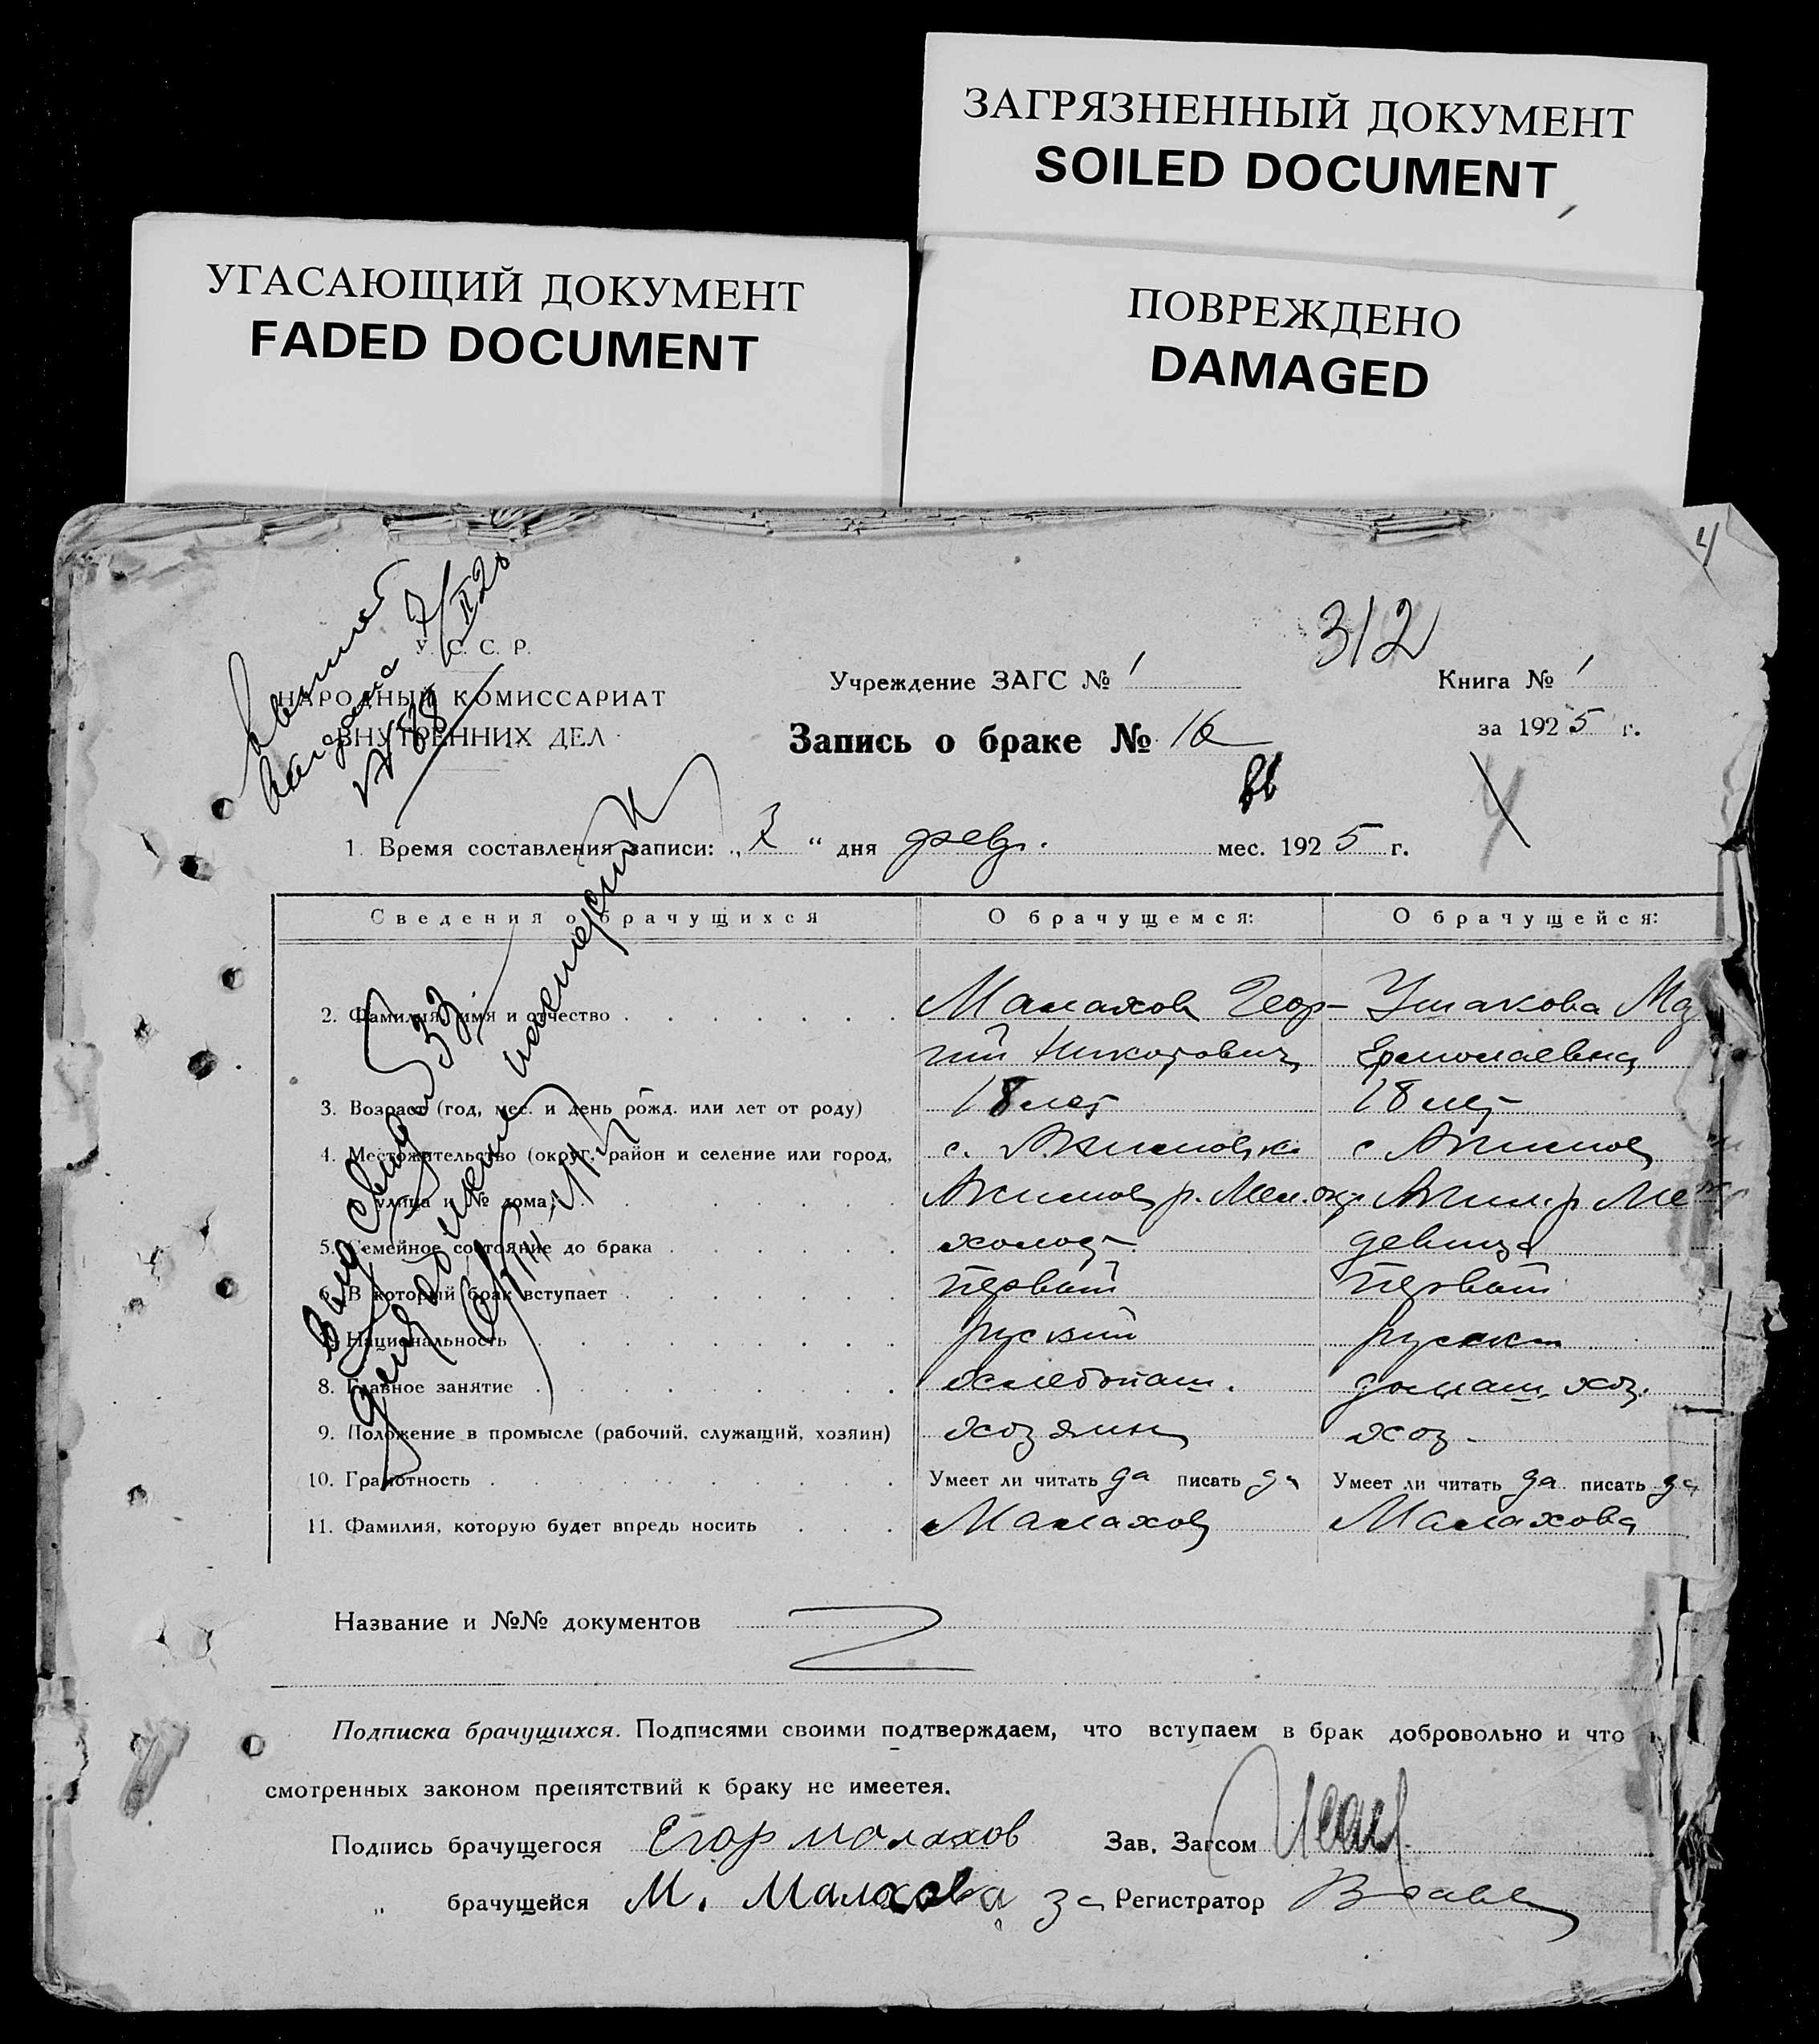 ЗАГРЯЗНЕННЫЙ ДОКУМЕНТ
SOILED DOCUMENT
УГАСАЮЩИЙ ДОКУМЕНТ
FADED DOCUMENT
ПОВРЕЖДЕНО
DAMAGED
4
312
У. С. С. Р.
НАРОДНЫЙ КОМИССАРИАТ
ВНУТРЕННИХ ДЕЛ
Учреждение ЗАГС № 1
Книга № 1
Запись о браке № 16
за 1925 г.
1. Время составления записи: „ “ дня февр. мес. 1925 г.
Сведения о брачущихся О брачущемся: О брачущейся:
2. Фамилия, имя и отчество Малахов Геор- Ушакова
гий Ермолаевна
3. Возраст (год, мес. и день рожд. или лет от роду) 18 лет 18 лет
4. Местожительство (округ, район и селение или город, с. Акимовка с Акимов
улица и № дома) Акимов р. Мел. окр Аким. р Ме
5. Семейное состояние до брака холост девица
6. В который брак вступает первый первый
7. Национальность руский
8. Главное занятие хлебопаш. домаш. хоз.
9. Положение в промысле (рабочий, служащий, хозяин) хозяин хоз.
10. Грамотность Умеет ли читать да писать да Умеет ли читать да писать да
11. Фамилия, которую будет впредь носить Малахов Малахова
Название и №№ документов
Подписка брачущихся. Подписями своими подтверждаем, что вступаем в брак добровольно и что
смотренных законом препятствий к браку не имеетея.
Подпись брачущегося Егор малахов Зав. Загсом
„ брачущейся М. Малахова за Регистратор